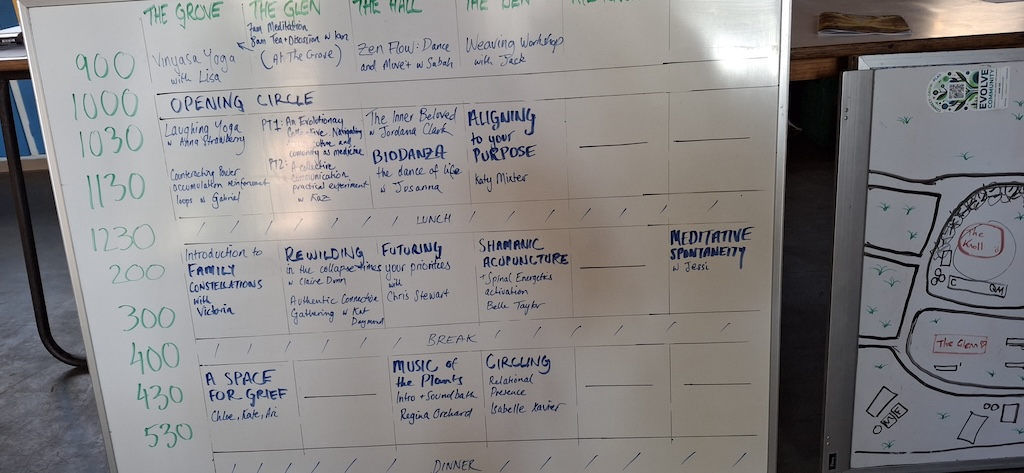 THE GROVE
THE GLEN
THE HALL
THE DEN
900
Vinyasa Yoga
with Lisa
7am Meditation
8am Tea + Discussion w
(At The Grove)
Zen Flow: Dance
and Move+ w Sabah
Weaving Workshop
with Jack
1000
OPENING CIRCLE
1030
Laughing Yoga
w Anna Strawberry
PT1: An Evolutionary
Navigating
and
as medicine
The Inner Beloved
w Jordana Clark
ALIGNING
to your
PURPOSE
Katy Mixter
1130
Counteracting Power
accumulation reinforcement
loops w Gabriel
PT2: A collective
communication
practical experiment
w Kaz
BIODANZA
the dance of life
w Josanna
LUNCH
1230
Introduction to
FAMILY
CONSTELLATIONS
with
Victoria
REWILDING
in the collapse times
w Claire Dunn
FUTURING
your priorities
with
Chris Stewart
SHAMANIC
ACUPUNCTURE
+ Spinal Energetics
activation
Belle Taylor
MEDITATIVE
SPONTANEITY
w Jessi
200
Authentic Connection
Gathering w Kat
Daymond
300
BREAK
400
A SPACE
FOR GRIEF
Chloe, Kate, Ari
MUSIC of
the Plants
Intro + Soundbath
Regina Orchard
CIRCLING
Relational
Presence
Isabelle Xavier
430
530
DINNER
EVOLVE
COMMUNITY
The
Knoll
C
QM
The Glenn